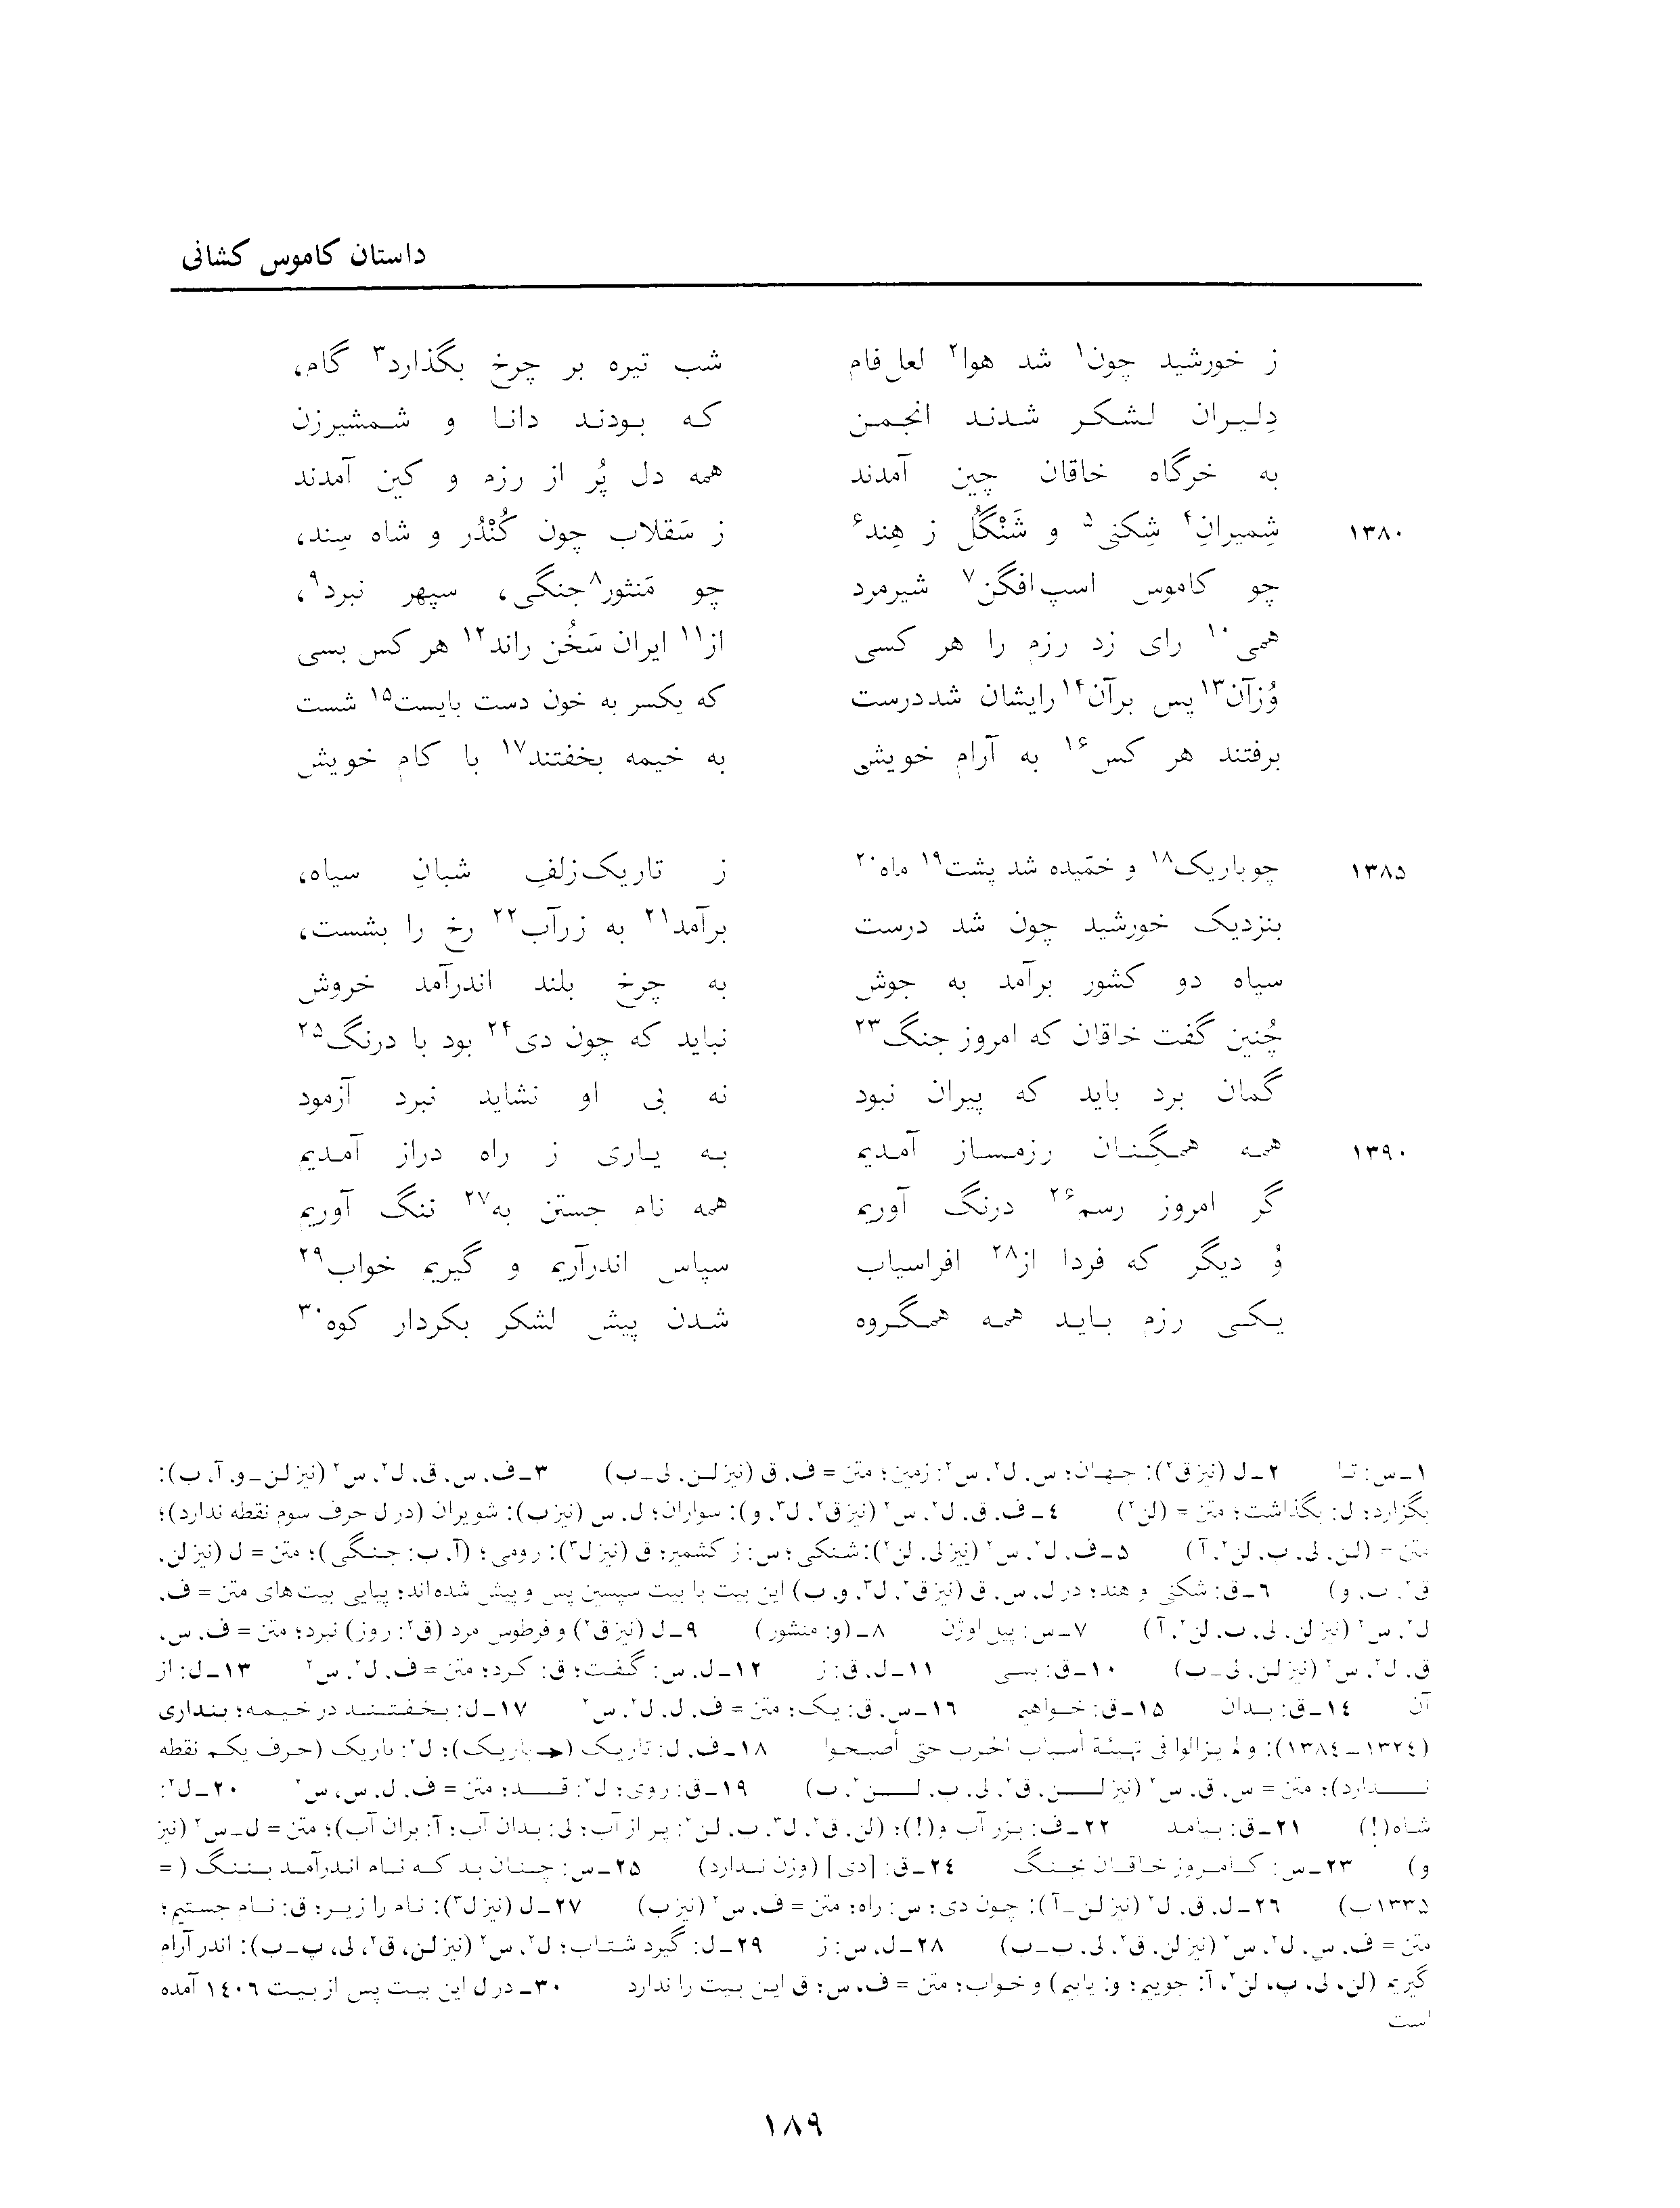 داستان کاموس کشانی
ز خورشید چون۱ شد هوا۲ لعل‌فام شب تیره بر چرخ بگذارد۳ گام،
دِلیران لشکر شدند انجمن که بودند دانا و شمشیرزن
به خرگاه خاقان چین آمدند همه دل پُر از رزم و کین آمدند
۱۳۸۰ شِمیرانِ۴ شِکنی۵ و شَنْگُل ز هِند۶ ز سَقلاب چون کُنْدُر و شاه سِند،
چو کاموس اسپ‌افگن۷ شیرمرد چو مَنثور۸ جنگی، سپهر نبرد۹،
همی۱۰ رای زد رزم را هر کسی از۱۱ ایران سَخُن راند۱۲ هر کس بسی
وُزآن۱۳ پس برآن۱۴ رایشان شد درست که یکسر به خون دست بایست۱۵ شست
برفتند هر کس۱۶ به آرام خویش به خیمه بخفتند۱۷ با کام خویش
۱۳۸۵ چو باریک۱۸ و خمّیده شد پشت۱۹ ماه۲۰ ز تاریک‌زلفِ شبانِ سیاه،
بنزدیک خورشید چون شد درست برآمد۲۱ به زرآب۲۲ رخ را بشست،
سپاه دو کشور برآمد به جوش به چرخ بلند اندرآمد خروش
چُنین گفت خاقان که امروز جنگ۲۳ نباید که چون دی۲۴ بود با درنگ۲۵
گمان برد باید که پیران نبود نه بی او نشاید نبرد آزمود
۱۳۹۰ همه همگِنان رزمساز آمدیم به یاری ز راه دراز آمدیم
گر امروز رسم۲۶ درنگ آوریم همه نام جستن به۲۷ ننگ آوریم
وُ دیگر که فردا از۲۸ افراسیاب سپاس اندرآریم و گیریم خواب۲۹
یکی رزم باید همه همگروه شدن پیش لشکر بکردار کوه۳۰
۱ـ س: تا ۲ـ ل (نیز ق۲): جهان؛ س، ل۲، س۲: زمین؛ متن = ف، ق (نیز لن، لی ـ ب) ۳ـ ف، س، ق، ل۲، س۲ (نیز لن ـ و، آ، ب):
بگزارد؛ ل: بگذاشت؛ متن = (لن۲) ٤ـ ف، ق، ل۲، س۲ (نیز ق۲، ل۳، و): سواران؛ ل، س (نیز ب): شویران (در ل حرف سوم نقطه ندارد)؛
متن = (لن، لی، پ، لن۲، آ) ۵ـ ف، ل۲، س۲ (نیز لی، لن۲): شنکی؛ س: ز کشمیر؛ ق (نیز ل۳): رومی؛ (آ، ب: جنگی)؛ متن = ل (نیز لن،
ق۲، پ، و) ۶ـ ق: شکنی و هند؛ در ل، س، ق (نیز ق۲، ل۳، و، ب) این بیت با بیت سپسین پس و پیش شده‌اند؛ پیاپی بیت‌های متن = ف،
ل۲، س۲ (نیز لن، لی، پ، لن۲، آ) ۷ـ س: پیل اوژن ۸ـ (و: منشور) ۹ـ ل (نیز ق۲) و فرطوس مرد (ق۲: روز) نبرد؛ متن = ف، س،
ق، ل۲، س۲ (نیز لن، لی ـ ب) ۱۰ـ ق: بسی ۱۱ـ ل، ق: ز ۱۲ـ ل، س: گفت؛ ق: کرد؛ متن = ف، ل۲، س۲ ۱۳ـ ل: از
آن ۱٤ـ ق: بدان ۱۵ـ ق: خواهیم ۱۶ـ س، ق: یک؛ متن = ف، ل، ل۲، س۲ ۱۷ـ ل: بخفتند در خیمه؛ بنداری
(۱۳۲٤ ـ ۱۳۸٤): ولم یزالوا فی تهیئة أسباب الحرب حتی أصبحوا ۱۸ـ ف، ل: تاریک (← باریک)؛ ل۲: باریک (حرف یکم نقطه
ندارد)؛ متن = س، ق، س۲ (نیز لن، ق۲، لی، پ، لن۲، ب) ۱۹ـ ق: روی؛ ل۲: قد؛ متن = ف، ل، س، س۲ ۲۰ـ ل۲:
شاه(!) ۲۱ـ ق: بیامد ۲۲ـ ف: بزر آب و(!)؛ (لن، ق۲، ل۳، پ، لن۲: پر از آب؛ لی: بدان آب؛ آ: بران آب)؛ متن = ل ـ س۲ (نیز
و) ۲۳ـ س: کامروز خاقان بجنگ ۲٤ـ ق: [دی] (وزن ندارد) ۲۵ـ س: چنان بد که نام اندرآمد بننگ (=
۱۳۳۵ب) ۲۶ـ ل، ق، ل۲ (نیز لن ـ آ): چون دی؛ س: راه؛ متن = ف، س۲ (نیز ب) ۲۷ـ ل (نیز ل۳): نام را زیر؛ ق: نام جستیم؛
متن = ف، س، ل۲، س۲ (نیز لن، ق۲، لی، پ ـ ب) ۲۸ـ ل، س: ز ۲۹ـ ل: گیرد شتاب؛ ل۲، س۲ (نیز لن، ق۲، لی، پ ـ ب): اندر آرام
گیریم (لن، لی، پ، لن۲، آ: جوییم؛ و: یابیم) و خواب؛ متن = ف، س؛ ق این بیت را ندارد ۳۰ـ در ل این بیت پس از بیت ۱٤۰۶ آمده
است
۱۸۹